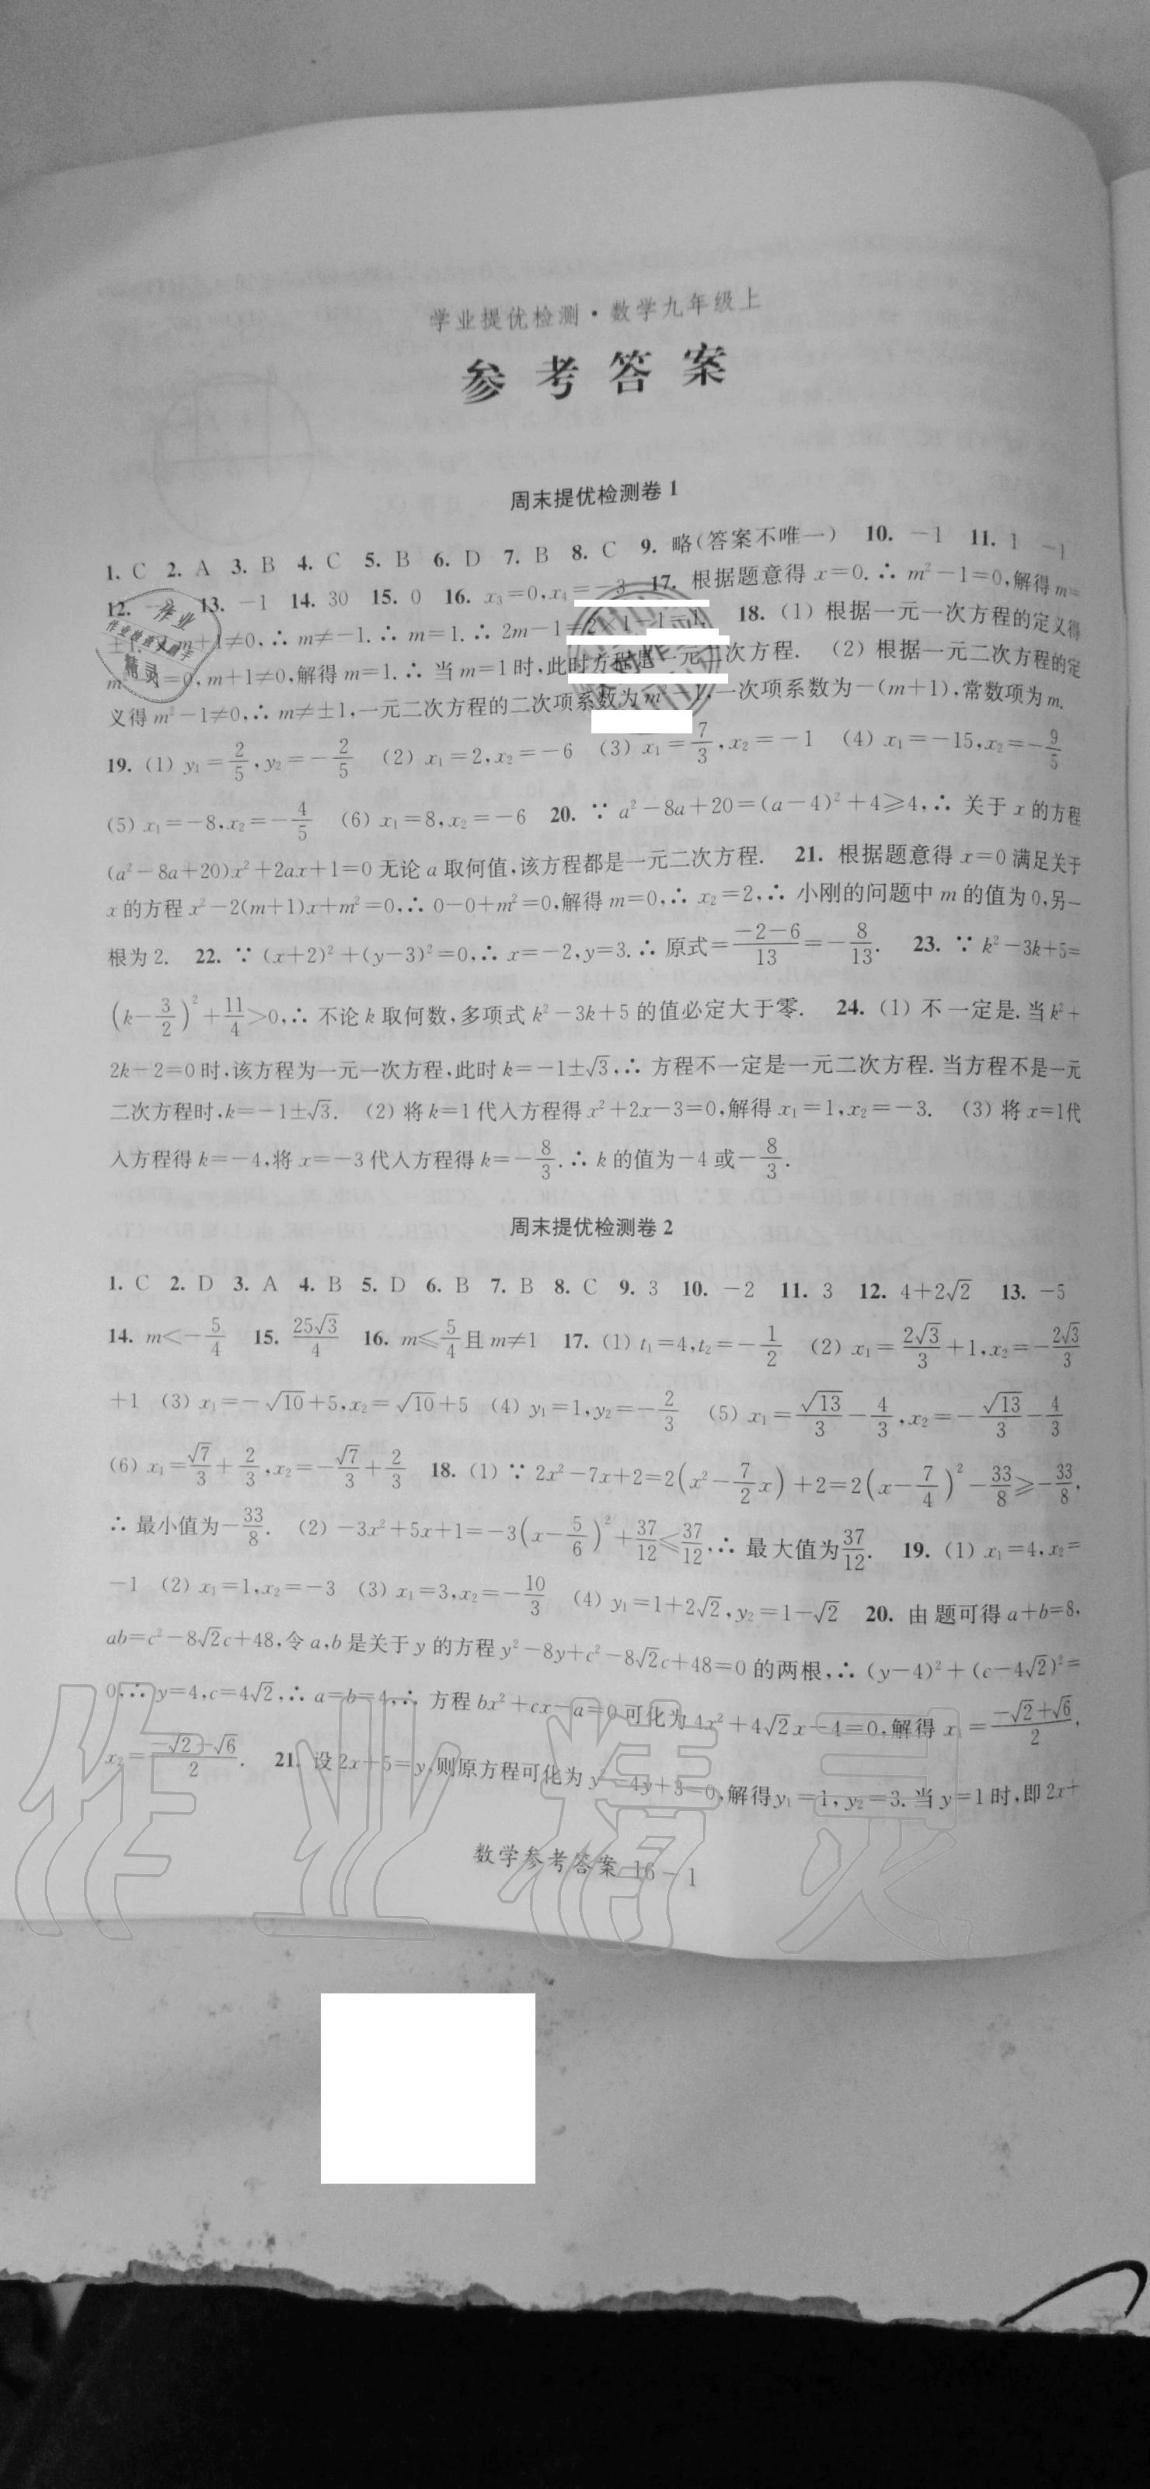 学业提优检测·数学九年级上
参考答案
周末提优检测卷1
1. C 2. A 3. B 4. C 5. B 6. D 7. B 8. C 9. 略(答案不唯一) 10. −1 11. 1 −1
12. 13. −1 14. 30 15. 0 16. x₃=0,x₄=−3 17. 根据题意得 x=0.∴ m²−1=0,解得 m=
±1. m+1≠0,∴ m≠−1.∴ m=1.∴ 2m−1=2×1−1=1. 18. (1) 根据一元一次方程的定义得
m²−1=0,m+1≠0,解得 m=1.∴ 当 m=1 时,此时方程是一元一次方程. (2) 根据一元二次方程的定
义得 m²−1≠0,∴ m≠±1,一元二次方程的二次项系数为 m²−1,一次项系数为−(m+1),常数项为 m.
19. (1) y₁=2/5,y₂=−2/5 (2) x₁=2,x₂=−6 (3) x₁=7/3,x₂=−1 (4) x₁=−15,x₂=−9/5
(5) x₁=−8,x₂=−4/5 (6) x₁=8,x₂=−6 20. ∵ a²−8a+20=(a−4)²+4⩾4,∴ 关于 x 的方程
(a²−8a+20)x²+2ax+1=0 无论 a 取何值,该方程都是一元二次方程. 21. 根据题意得 x=0 满足关于
x 的方程 x²−2(m+1)x+m²=0,∴ 0−0+m²=0,解得 m=0,∴ x₂=2,∴ 小刚的问题中 m 的值为 0,另一
根为 2. 22. ∵ (x+2)²+(y−3)²=0,∴ x=−2,y=3.∴ 原式=(−2−6)/13=−8/13. 23. ∵ k²−3k+5=
(k−3/2)²+11/4>0,∴ 不论 k 取何数,多项式 k²−3k+5 的值必定大于零. 24. (1) 不一定是. 当 k²+
2k−2=0 时,该方程为一元一次方程,此时 k=−1±√3,∴ 方程不一定是一元二次方程. 当方程不是一元
二次方程时,k=−1±√3. (2) 将 k=1 代入方程得 x²+2x−3=0,解得 x₁=1,x₂=−3. (3) 将 x=1代
入方程得 k=−4,将 x=−3 代入方程得 k=−8/3.∴ k 的值为−4 或−8/3.
周末提优检测卷2
1. C 2. D 3. A 4. B 5. D 6. B 7. B 8. C 9. 3 10. −2 11. 3 12. 4+2√2 13. −5
14. m<−5/4 15. 25√3/4 16. m⩽5/4且 m≠1 17. (1) t₁=4,t₂=−1/2 (2) x₁=2√3/3+1,x₂=−2√3/3
+1 (3) x₁=−√10+5,x₂=√10+5 (4) y₁=1,y₂=−2/3 (5) x₁=√13/3−4/3,x₂=−√13/3−4/3
(6) x₁=√7/3+2/3,x₂=−√7/3+2/3 18. (1) ∵ 2x²−7x+2=2(x²−7/2x)+2=2(x−7/4)²−33/8⩾−33/8,
∴ 最小值为−33/8. (2) −3x²+5x+1=−3(x−5/6)²+37/12⩽37/12,∴ 最大值为37/12. 19. (1) x₁=4,x₂=
−1 (2) x₁=1,x₂=−3 (3) x₁=3,x₂=−10/3 (4) y₁=1+2√2,y₂=1−√2 20. 由题可得 a+b=8,
ab=c²−8√2c+48,令 a,b 是关于 y 的方程 y²−8y+c²−8√2c+48=0 的两根,∴ (y−4)²+(c−4√2)²=
0,∴ y=4,c=4√2,∴ a=b=4,∴ 方程 bx²+cx−a=0 可化为 4x²+4√2x−4=0,解得 x₁=(−√2+√6)/2,
x₂=(−√2−√6)/2. 21. 设 2x+5=y,则原方程可化为 y²−4y+3=0,解得 y₁=1,y₂=3. 当 y=1 时,即 2x+
数学参考答案 16−1
作业精灵